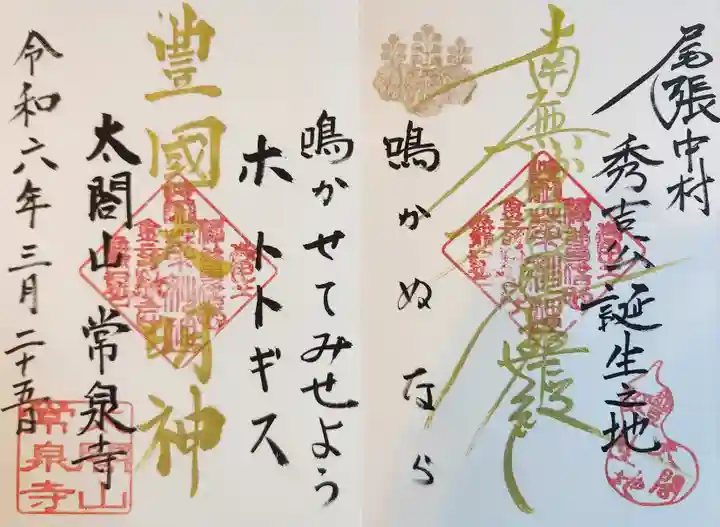 尾張中村
秀吉公誕生之地
南無妙法蓮華経
鳴かぬなら
鳴かせてみせよう
ホトトギス
豊國大明神
太閤山 常泉寺
令和六年三月二十五日
太閤山
常泉寺